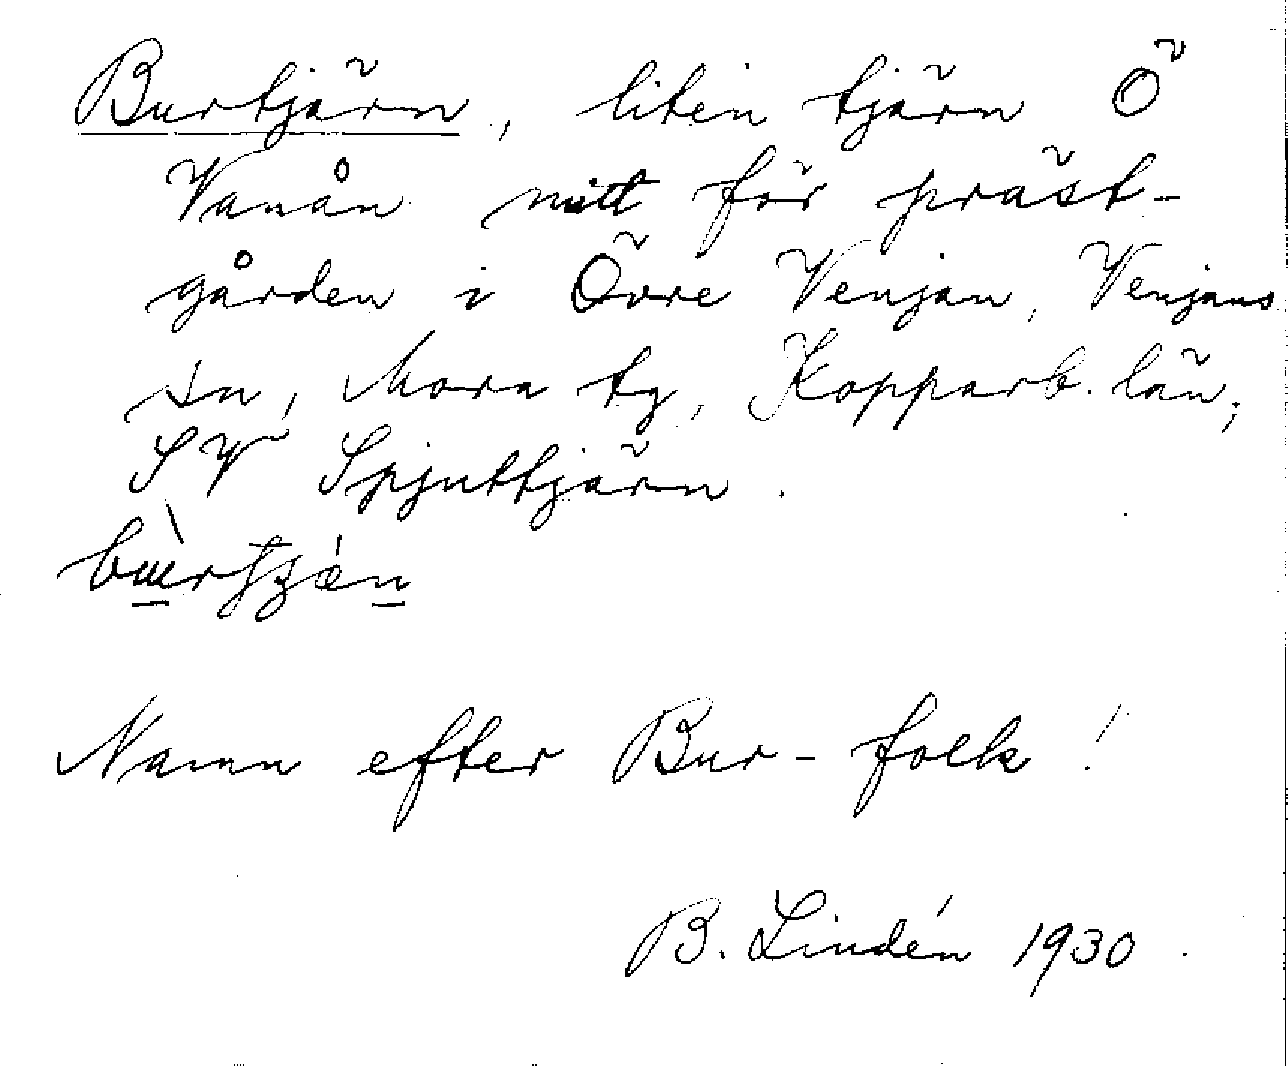 Burtjärn, liten tjärn Ö
Vanån mitt för präst-
gården i Övre Venjan, Venjans
sn, Mora tg, Kopparb. län;
SV Spjuttjärn.
Namn efter Bur-folk!
B. Lindén 1930.